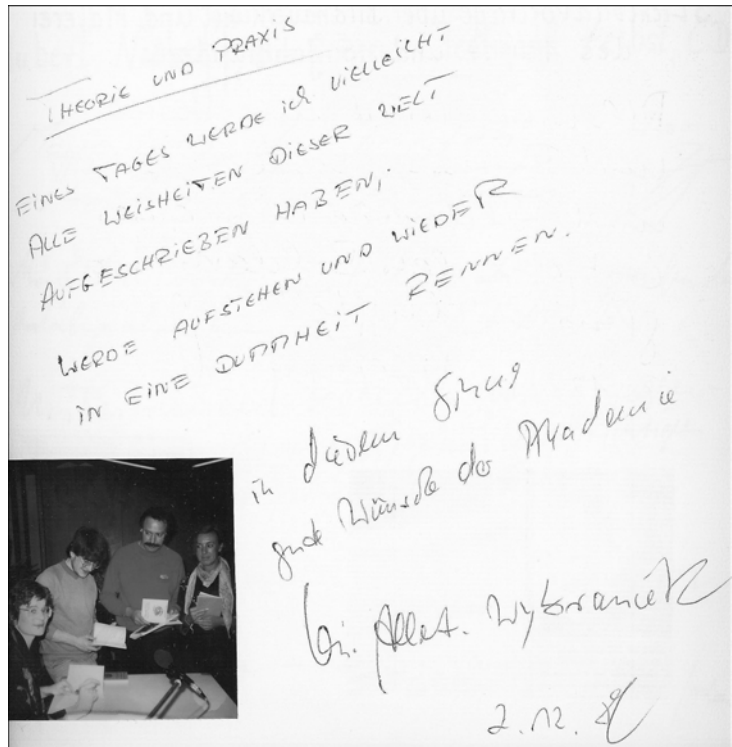 THEORIE UND PRAXIS
EINES TAGES WERDE ICH VIELLEICHT
ALLE WEISHEITEN DIESER WELT
AUFGESCHRIEBEN HABEN,
WERDE AUFSTEHEN UND WIEDER
IN EINE DUMMHEIT RENNEN.
in diesem Sinne
gute Wünsche der Akademie
Wybranietz
2.12.